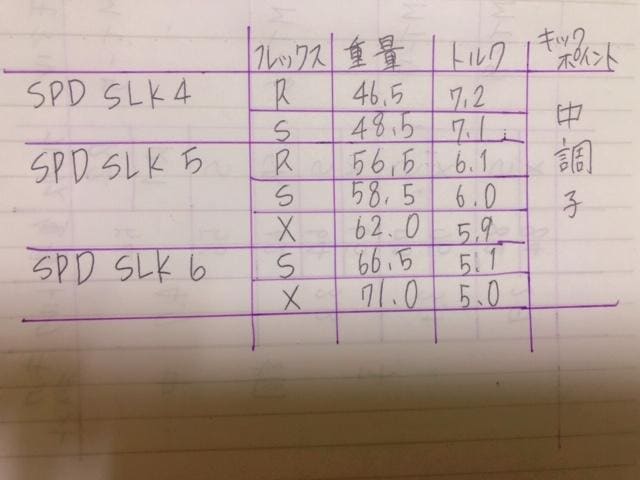 フレックス 重量 トルク キックポイント
SPD SLK 4 R 46.5 7.2
S 48.5 7.1
SPD SLK 5 R 56.5 6.1
S 58.5 6.0
X 62.0 5.9
SPD SLK 6 S 66.5 5.1
X 71.0 5.0
中調子